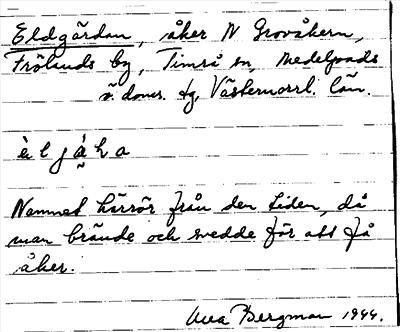 Eldgärdan, åker N Grovåkern,
Frölands by, Timrå sn, Medelpads
v. doms. tg, Västernorrl. län.
Namnet härrör från den tiden, då
man brände och svedde för att få
åker.
Bergman 1944.